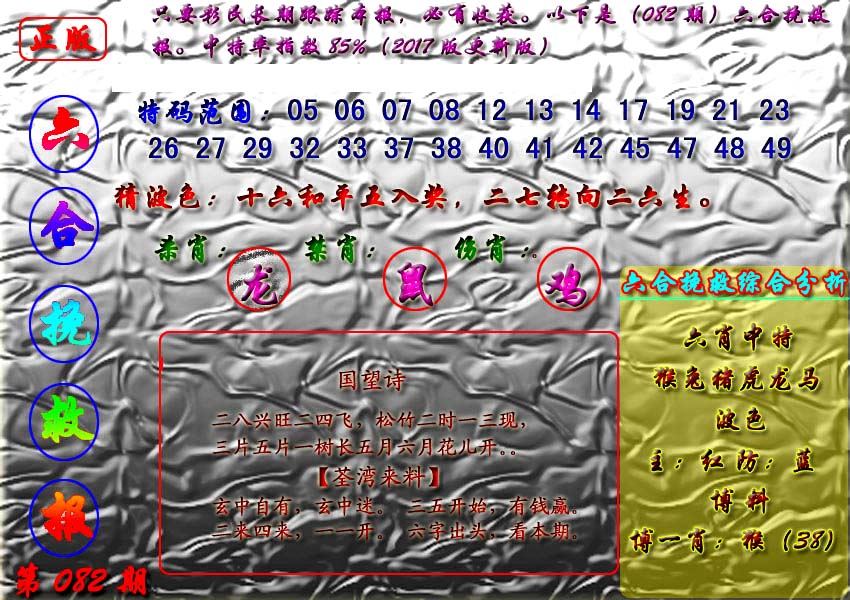 只要彩民长期跟踪本报，必有收获。以下是（082期）六合挽救
报。中特率指数85%（2017版更新版）
正版
六合挽救报
第082期
特码范围：05 06 07 08 12 13 14 17 19 21 23
26 27 29 32 33 37 38 40 41 42 45 47 48 49
猜波色：十六和平五入奖，二七转向二六生。
杀肖：龙 禁肖：鼠 伤肖：。鸡
国望诗
二八兴旺二四飞，松竹二时一三现，
三片五片一树长五月六月花儿开。。
【荃湾来料】
玄中自有，玄中迷。 三五开始，有钱赢。
三来四来，一一开。 六字出头，看本期。
六合挽救综合分析
六肖中特
猴兔猪虎龙马
波色
主：红防：蓝
博料
博一肖：猴（38）